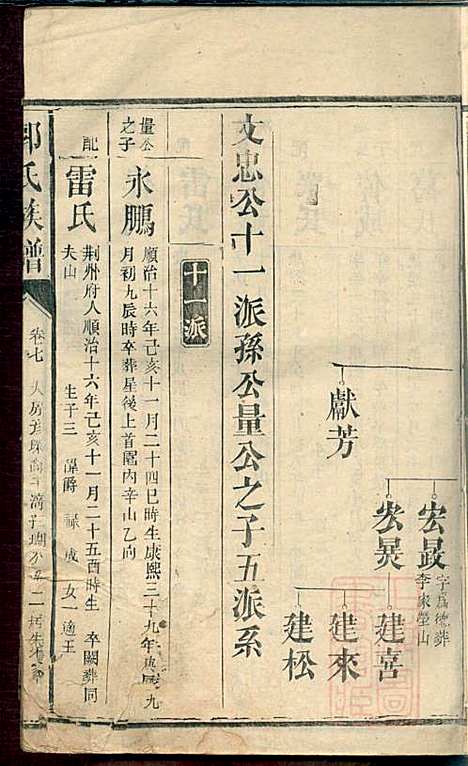 宏㫤
字為德葬
李家塋山
宏晃
建喜
建來
建松
獻芳
文忠公十一派孫公量公之子五派系
十一派
量公之子
永鵬
順治十六年己亥十一月二十四巳時生康熙三十九年庚辰九
月初九辰時卒葬星後上首園內辛山乙向
配
雷氏
荆州府人順治十六年己亥十一月二十五酉時生 卒闕葬同
夫山 生子三 爵 祿 成 女一適王
氏族譜
卷七